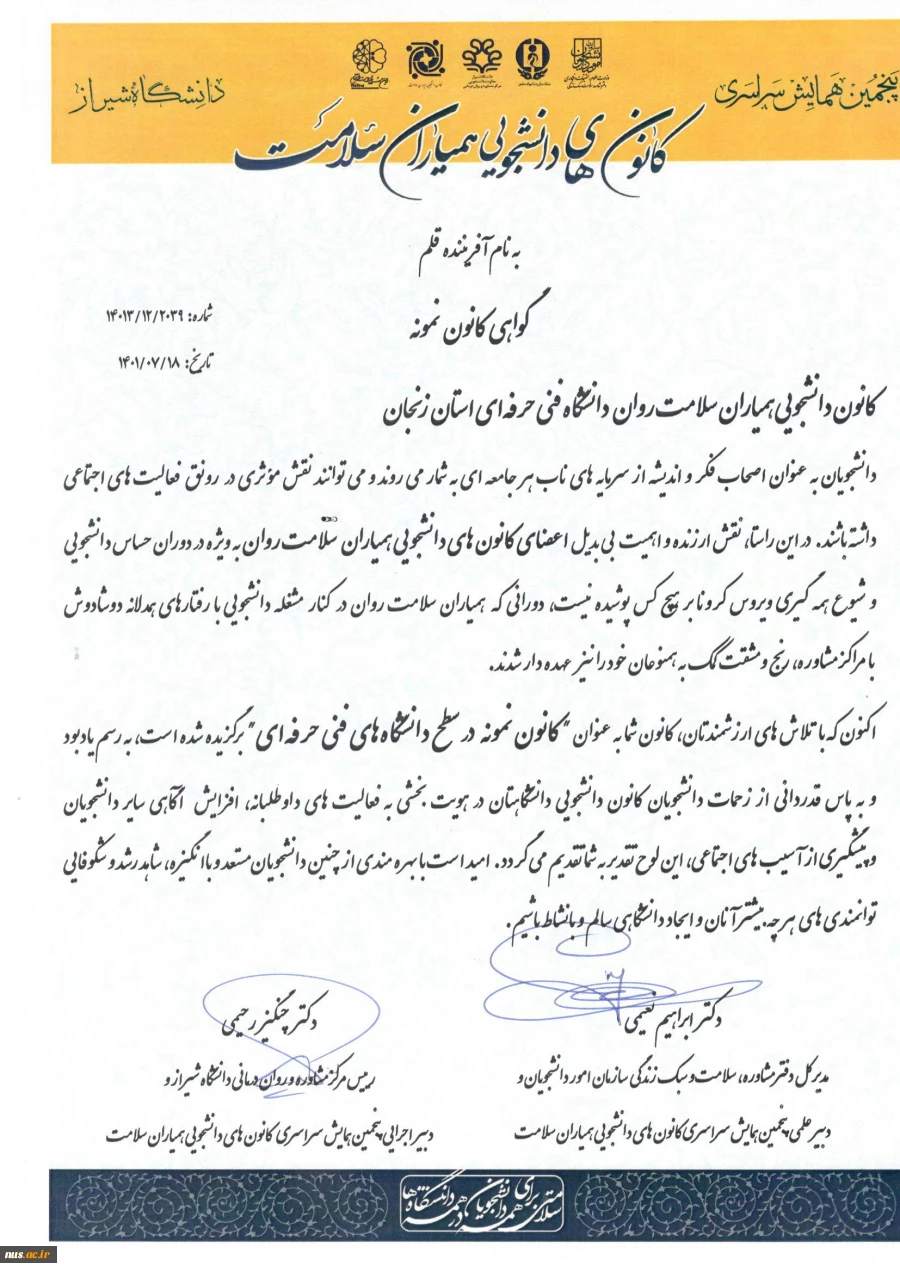 پنجمین همایش سراسری
کانون های دانشجویی همیاران سلامت
دانشگاه شیراز
به نام آفریننده قلم
گواهی کانون نمونه
شماره: ۱۴۰۱۳/۱۲/۲۰۳۹
تاریخ: ۱۴۰۱/۰۷/۱۸
کانون دانشجویی همیاران سلامت روان دانشگاه فنی حرفه ای استان زنجان
دانشجویان به عنوان اصحاب فکر و اندیشه از سرمایه های ناب هر جامعه ای به شمار می روند و می توانند نقش مؤثری در رونق فعالیت های اجتماعی
داشته باشند. در این راستا، نقش ارزنده و اهمیت بی بدیل اعضای کانون های دانشجویی همیاران سلامت روان به ویژه در دوران حساس دانشجویی
و شیوع همه گیری ویروس کرونا بر هیچ کس پوشیده نیست، دورانی که همیاران سلامت روان در کنار مشغله دانشجویی با رفتارهای همدلانه دوشادوش
با مراکز مشاوره، رنج و مشقت کمک به همنوعان خود را نیز عهده دار شدند.
اکنون که با تلاش های ارزشمندتان، کانون شما به عنوان "کانون نمونه در سطح دانشگاه های فنی حرفه ای" برگزیده شده است، به رسم یادبود
و به پاس قدردانی از زحمات دانشجویان کانون دانشجویی دانشگاهتان در هویت بخشی به فعالیت های داوطلبانه، افزایش آگاهی سایر دانشجویان
و پیشگیری از آسیب های اجتماعی، این لوح تقدیر به شما تقدیم می گردد. امید است با بهره مندی از چنین دانشجویان مستعد و با انگیزه، شاهد رشد و شکوفایی
توانمندی های هرچه بیشتر آنان و ایجاد دانشگاهی سالم و بانشاط باشیم.
دکتر ابراهیم نعیمی
مدیرکل دفتر مشاوره، سلامت و سبک زندگی سازمان امور دانشجویان و
دبیر علمی پنجمین همایش سراسری کانون های دانشجویی همیاران سلامت
دکتر چنگیز رحیمی
رییس مرکز مشاوره و روان درمانی دانشگاه شیراز و
دبیر اجرایی پنجمین همایش سراسری کانون های دانشجویی همیاران سلامت
سلامتی برای همه دانشجویان در همه دانشگاه ها
nus.ac.ir